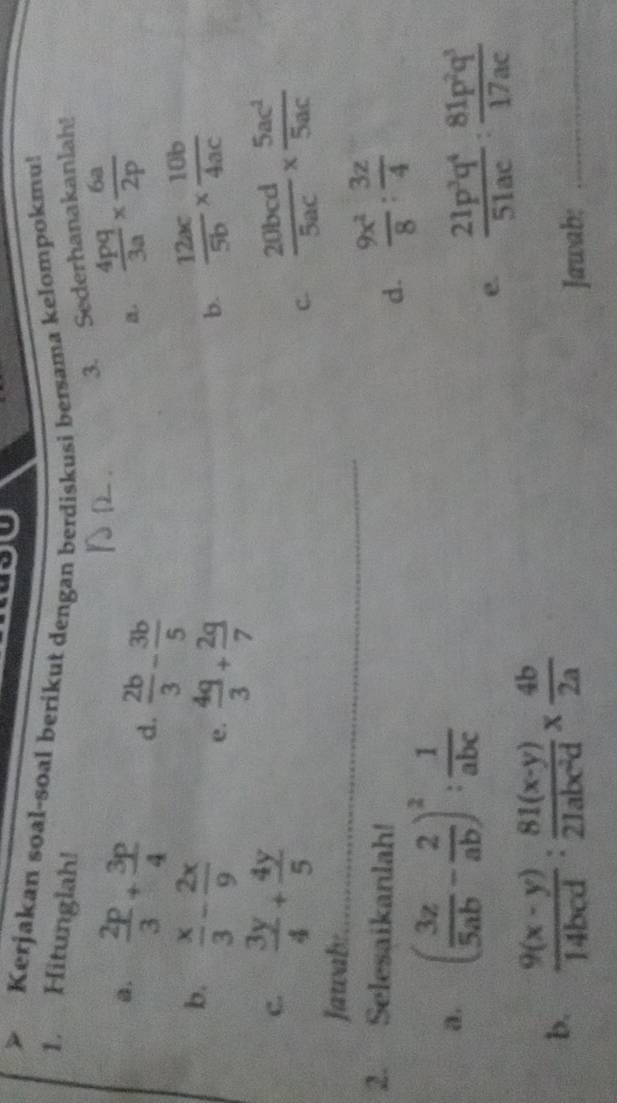 Kerjakan soal-soal berikut dengan berdiskusi bersama kelompokmu!
1. Hitunglah!
a. 2p/3 + 3p/4
b. x/3 - 2x/9
c. 3y/4 + 4y/5
d. 2b/3 - 3b/5
e. 4q/3 + 2q/7
Jawab:
2. Selesaikanlah!
a. (3z/5ab - 2/ab)² : 1/abc
b. 9(x - y)/14bcd : 81(x-y)/21abc²d x 4b/2a
3. Sederhanakanlah!
a. 4pq/3a x 6a/2p
b. 12ac/5b x 10b/4ac
c. 20bcd/5ac x 5ac²/5ac
d. 9x²/8 : 3z/4
e. 21p³q⁴/51ac : 81p²q³/17ac
Jawab: